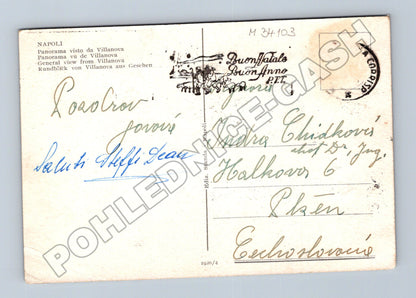 M 34.103
NAPOLI
Panorama visto da Villanova
Panorama vu de Villanova
General view from Villanova
Rundblick von Villanova aus Gesehen
Buon Natale
Buon Anno
P.T.T.
Pozdrov
Jarová
Saluti Steffe Dean
Jarová
Indra Chudková
chef Dr. Jng.
Halkova 6
Plzén
Cechoslovacia
POHLEDNICE-GASH